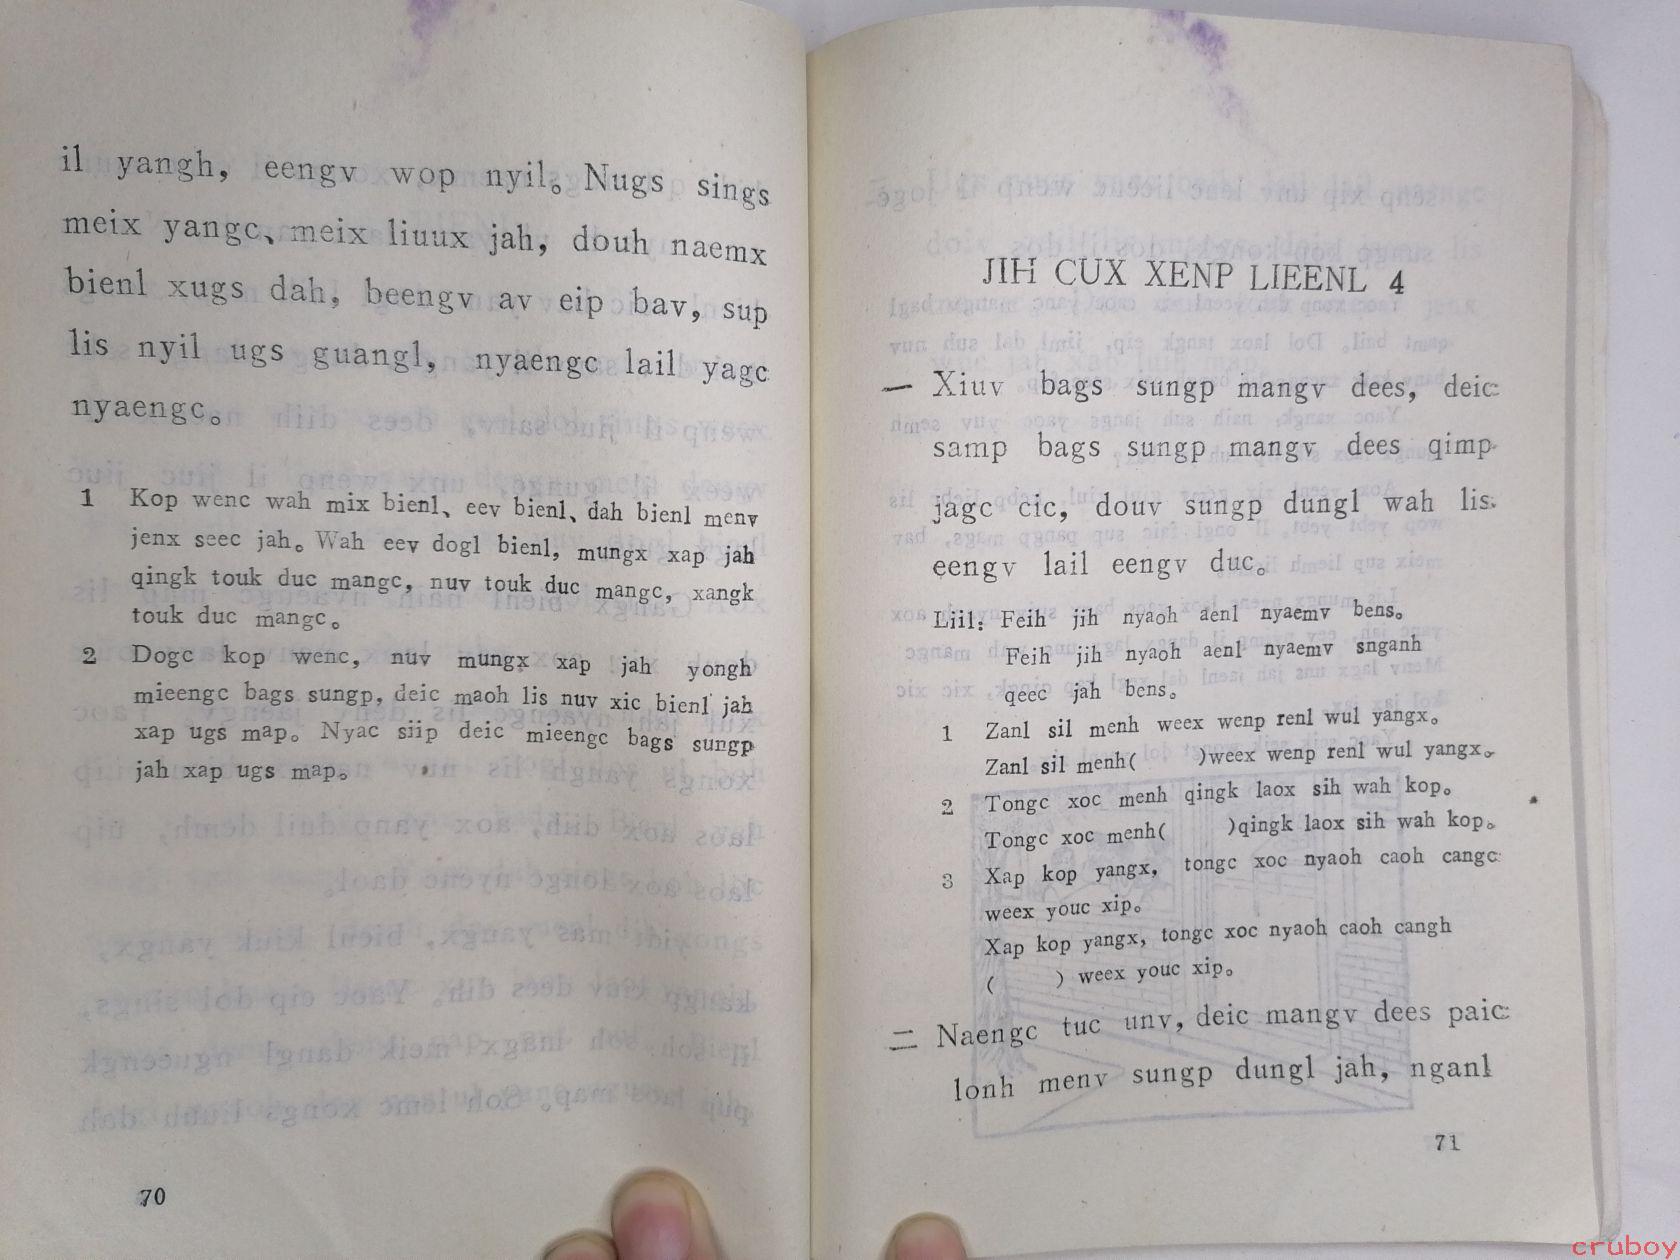 il yangh, eengv wop nyil。Nugs sings
meix yangc、meix liuux jah, douh naemx
bienl xugs dah, beengv av eip bav, sup
lis nyil ugs guangl, nyaengc lail yagc
nyaengc。
1 Kop wenc wah mix bienl、eev bienl、dah bienl menv
jenx seec jah。Wah eev dogl bienl, mungx xap jah
qingk touk duc mangc, nuv touk duc mangc, xangk
touk duc mangc。
2 Dogc kop wenc, nuv mungx xap jah yongh
mieengc bags sungp, deic maoh lis nuv xic bienl jah
xap ugs map。Nyac siip deic mieengc bags sungp
jah xap ugs map。
70
JIH CUX XENP LIEENL 4
一 Xiuv bags sungp mangv dees, deic
samp bags sungp mangv dees qimp
jagc cic, douv sungp dungl wah lis
eengv lail eengv duc。
Liil: Feih jih nyaoh aenl nyaemv bens。
Feih jih nyaoh aenl nyaemv snganh
qeec jah bens。
1 Zanl sil menh weex wenp renl wul yangx。
Zanl sil menh( )weex wenp renl wul yangx。
2 Tongc xoc menh qingk laox sih wah kop。
Tongc xoc menh( )qingk laox sih wah kop。
3 Xap kop yangx, tongc xoc nyaoh caoh cangc
weex youc xip。
Xap kop yangx, tongc xoc nyaoh caoh cangh
( ) weex youc xip。
二 Naengc tuc unv, deic mangv dees paic
lonh menv sungp dungl jah, nganl
71
cruboy